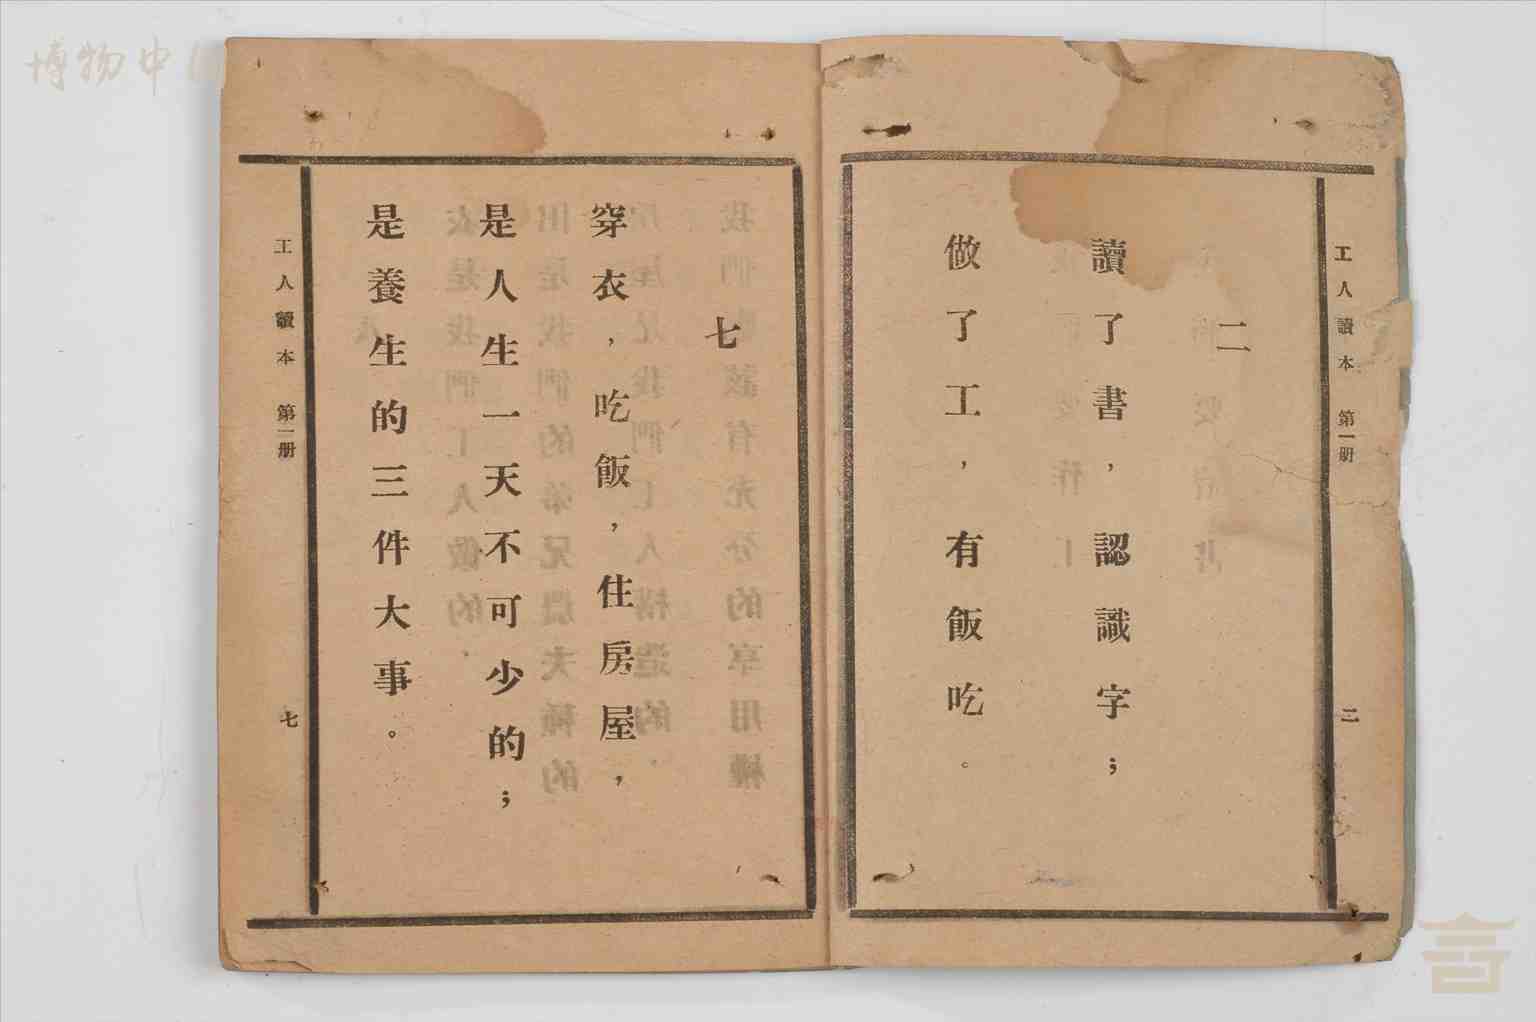 博物中国
工人讀本 第一册 二
二
讀了書，認識字；
做了工，有飯吃。
七
穿衣，吃飯，住房屋，
是人生一天不可少的；
是養生的三件大事。
工人讀本 第一册 七